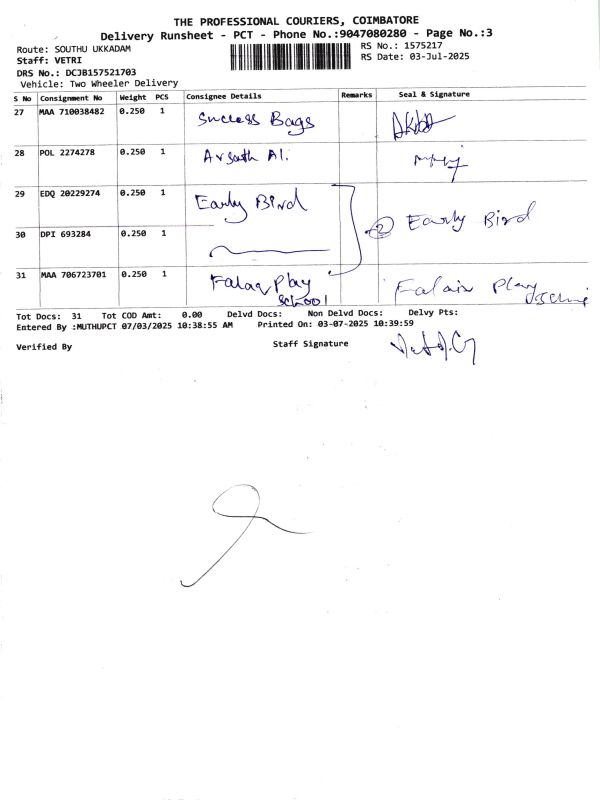 THE PROFESSIONAL COURIERS, COIMBATORE
Delivery Runsheet - PCT - Phone No.:9047080280 - Page No.:3
Route: SOUTHU UKKADAM
RS No.: 1575217
Staff: VETRI
RS Date: 03-Jul-2025
DRS No.: DCJB157521703
Vehicle: Two Wheeler Delivery
S No Consignment No Weight PCS Consignee Details Remarks Seal & Signature
27 MAA 710038482 0.250 1 Success Bags
28 POL 2274278 0.250 1 Arsath Ali.
29 EDQ 20229274 0.250 1 Early Bird
30 DPI 693284 0.250 1 2 Early Bird
31 MAA 706723701 0.250 1 Falaq Play School Falain Play
Tot Docs: 31 Tot COD Amt: 0.00 Delvd Docs: Non Delvd Docs: Delvy Pts:
Entered By :MUTHUPCT 07/03/2025 10:38:55 AM Printed On: 03-07-2025 10:39:59
Verified By Staff Signature